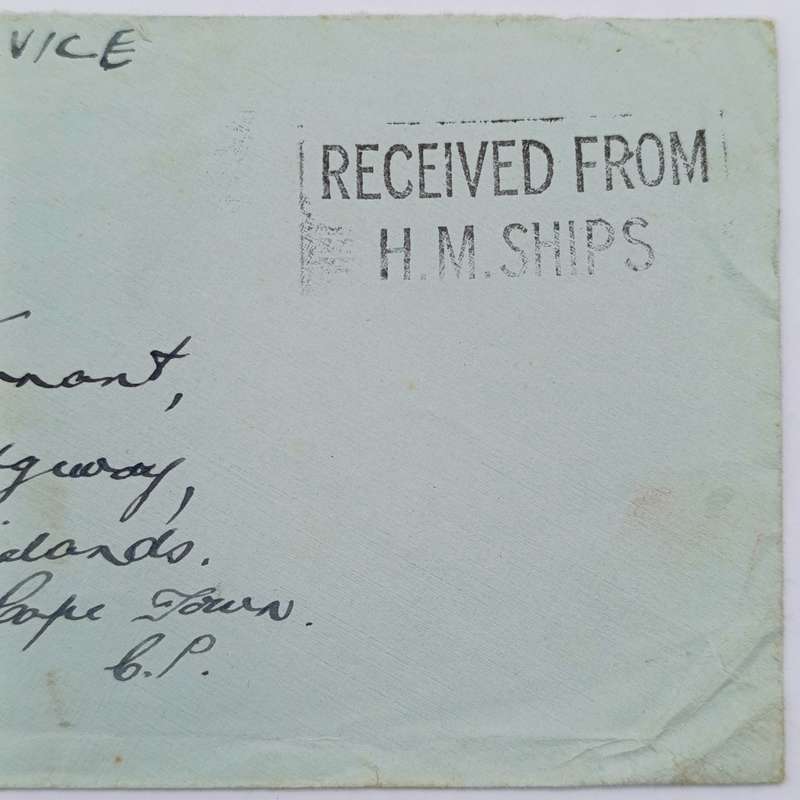 VICE
RECEIVED FROM
H.M.SHIPS
nnant,
dgeway,
slands.
Cape Town.
C.P.